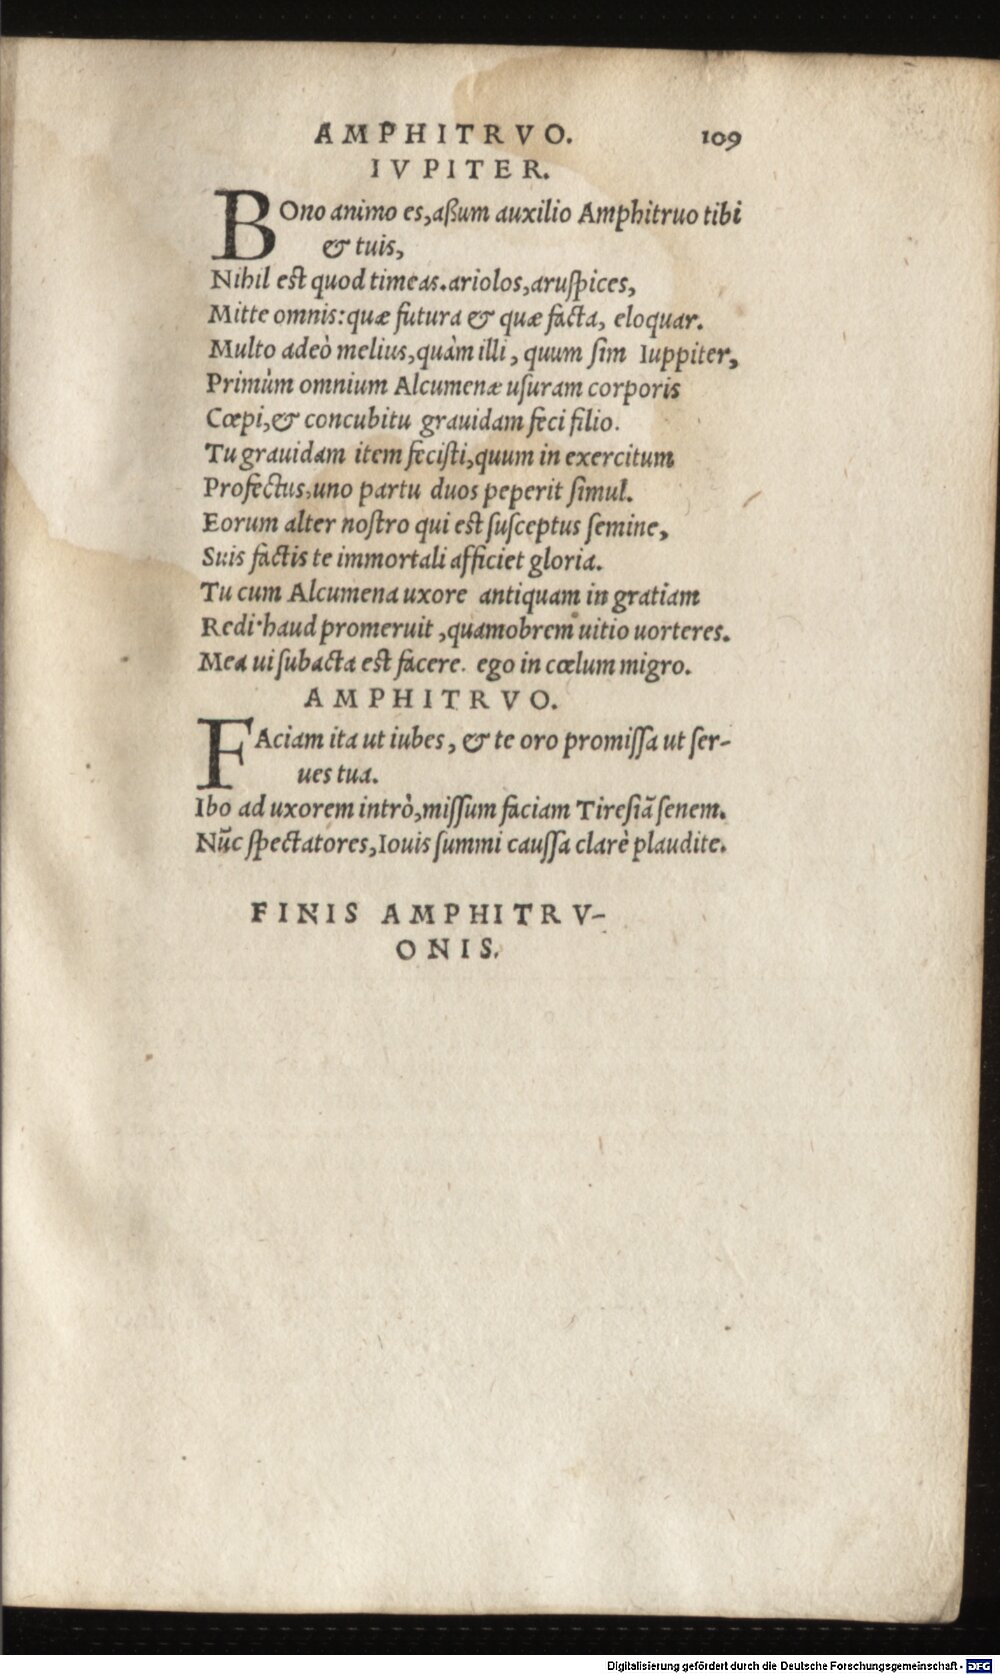 AMPHITRVO. 109
IVPITER.
BOno animo es,aßum auxilio Amphitruo tibi
& tuis,
Nihil est quod timeas.ariolos,aruſpices,
Mitte omnis:quæ futura & quæ facta, eloquar.
Multo adeò melius,quàm illi, quum ſim Iuppiter,
Primùm omnium Alcumenæ uſuram corporis
Cœpi,& concubitu grauidam feci filio.
Tu grauidam item feciſti,quum in exercitum
Profectus,uno partu duos peperit ſimul.
Eorum alter noſtro qui est ſuſceptus ſemine,
Suis factis te immortali afficiet gloria.
Tu cum Alcumena uxore antiquam in gratiam
Redi·haud promeruit ,quamobrem uitio uorteres.
Mea ui ſubacta est facere. ego in cœlum migro.
AMPHITRVO.
FAciam ita ut iubes, & te oro promiſſa ut ſer-
ues tua.
Ibo ad uxorem intrò,miſſum faciam Tireſiã ſenem.
Nũc ſpectatores,Iouis ſummi cauſſa clarè plaudite.
FINIS AMPHITRV-
ONIS.
Digitalisierung gefördert durch die Deutsche Forschungsgemeinschaft - DFG